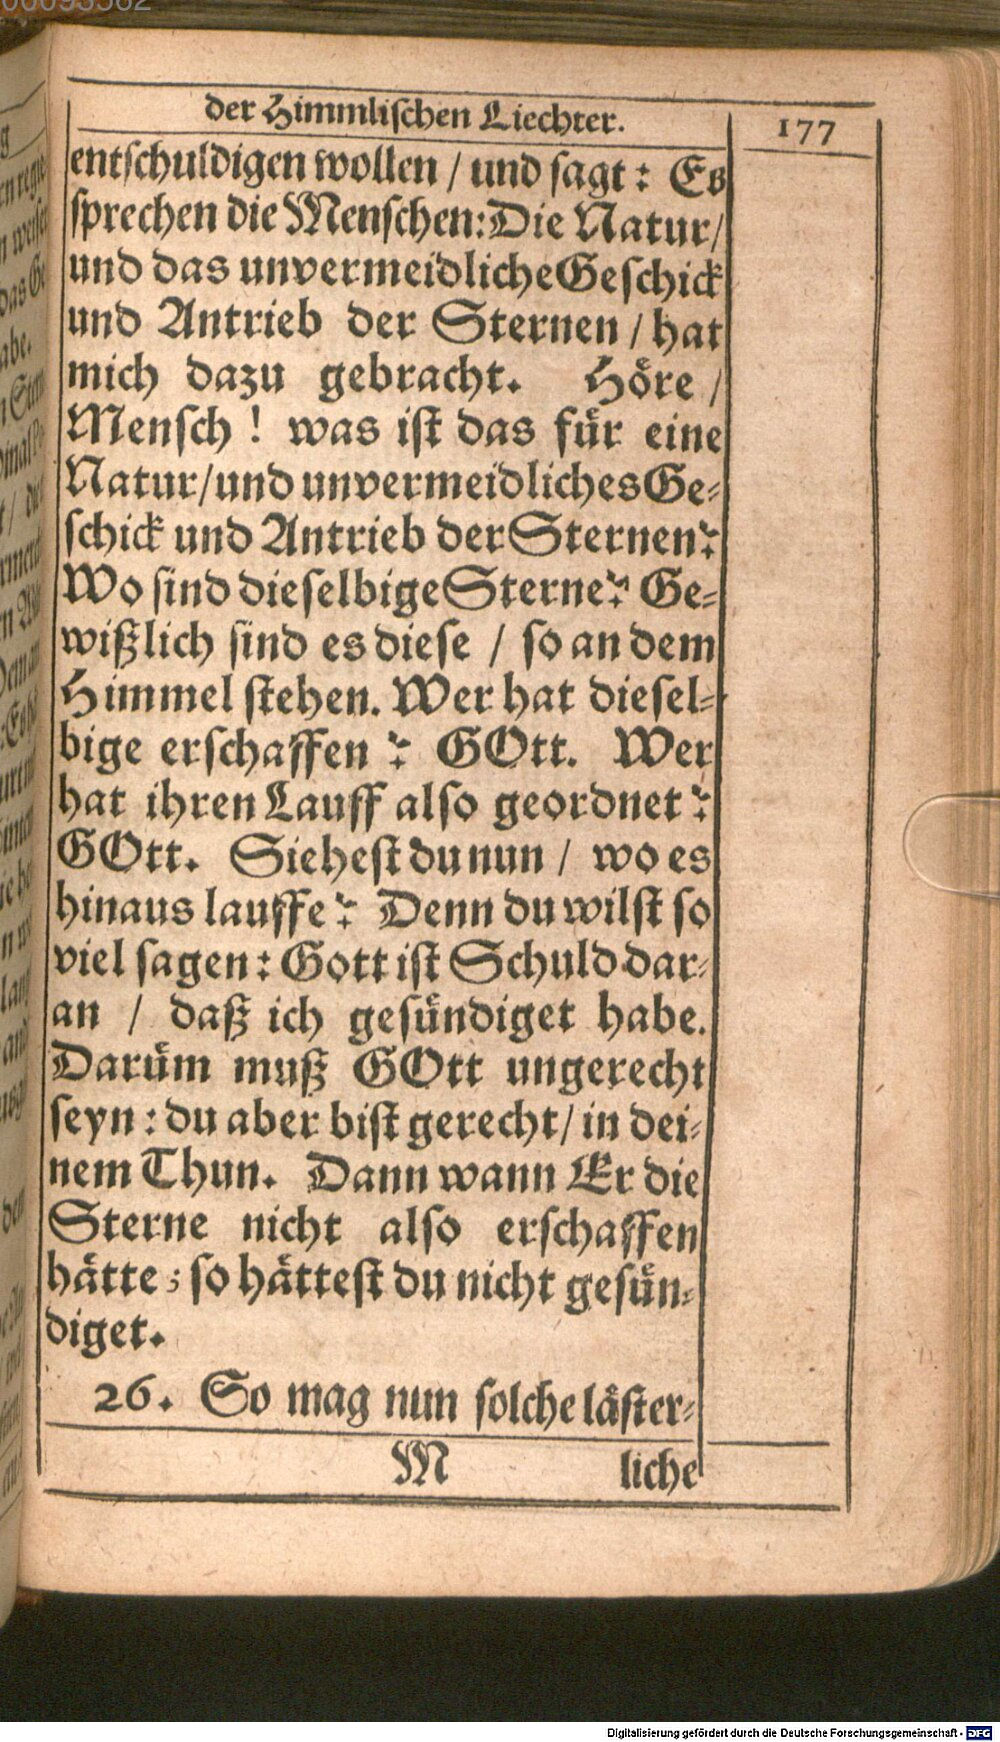 der Himmlischen Liechter.
177
entschuldigen wollen / und sagt: Es
sprechen die Menschen: Die Natur /
und das unvermeidliche Geschick
und Antrieb der Sternen / hat
mich dazu gebracht. Höre /
Mensch! was ist das für eine
Natur / und unvermeidliches Ge-
schick und Antrieb der Sternen?
Wo sind dieselbige Sterne? Ge-
wißlich sind es diese / so an dem
Himmel stehen. Wer hat diesel-
bige erschaffen? GOtt. Wer
hat ihren Lauff also geordnet?
GOtt. Siehest du nun / wo es
hinaus lauffe? Denn du wilst so
viel sagen: Gott ist Schuld dar-
an / daß ich gesündiget habe.
Darüm muß GOtt ungerecht
seyn: du aber bist gerecht / in dei-
nem Thun. Dann wann Er die
Sterne nicht also erschaffen
hätte; so hättest du nicht gesün-
diget.
26. So mag nun solche läster-
M liche
Digitalisierung gefördert durch die Deutsche Forschungsgemeinschaft - DFG